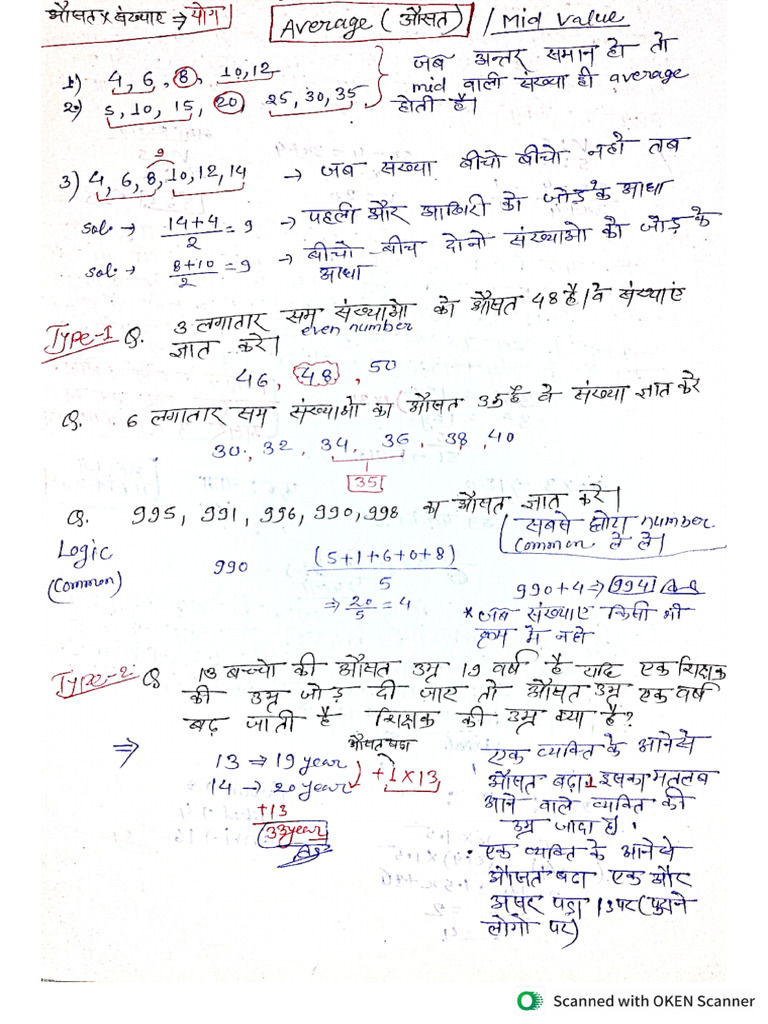 औसत × संख्याए ⇒ योग
Average (औसत) / Mid Value
1) 4, 6, 8, 10, 12
2) 5, 10, 15, 20, 25, 30, 35
जब अन्तर समान हो तो
mid वाली संख्या ही average
होती है।
3) 4, 6, 8, 10, 12, 14
9
→ जब संख्या बीचो बीचो नहो तब
Sol. → (14+4)/2 = 9 → पहली और आखिरी को जोड़ के आधा
Sol. → (8+10)/2 = 9 → बीचो-बीच दोनो संख्याओ को जोड़ के
आधा
Type-1 Q. 3 लगातार सम संख्याओ को औसत 48 है। वे संख्याएं
even number
ज्ञात करे।
46, 48, 50
Q. 6 लगातार सम संख्याओ का औसत 35 है वे संख्या ज्ञात करे
30, 32, 34, 36, 38, 40
35
Q. 995, 991, 996, 990, 998 का औसत ज्ञात करे।
सबसे छोटा number
common ले ले।
Logic
(Common)
990 (5+1+6+0+8)/5
⇒ 20/5 = 4
990+4 ⇒ 994 Ans
* जब संख्याए किसी भी
क्रम मे नहो
Type-2 Q 13 बच्चो की औसत उम्र 19 वर्ष है यदि एक शिक्षक
की उम्र जोड़ दी जाए तो औसत उम्र एक वर्ष
बढ़ जाती है शिक्षक की उम्र क्या है?
⇒ 13 ⇒ 19 year
14 → 20 year
+13
33 year
Ans
+1 × 13
एक व्यक्ति के आनेसे
औसत बढ़ा 1 इसका मतलब
आने वाले व्यक्ति की
उम्र जादा है।
• एक व्यक्ति के आनेसे
औसत बढा एक और
असर पड़ा 13 पर (पुराने
लोगो पर)
Scanned with OKEN Scanner